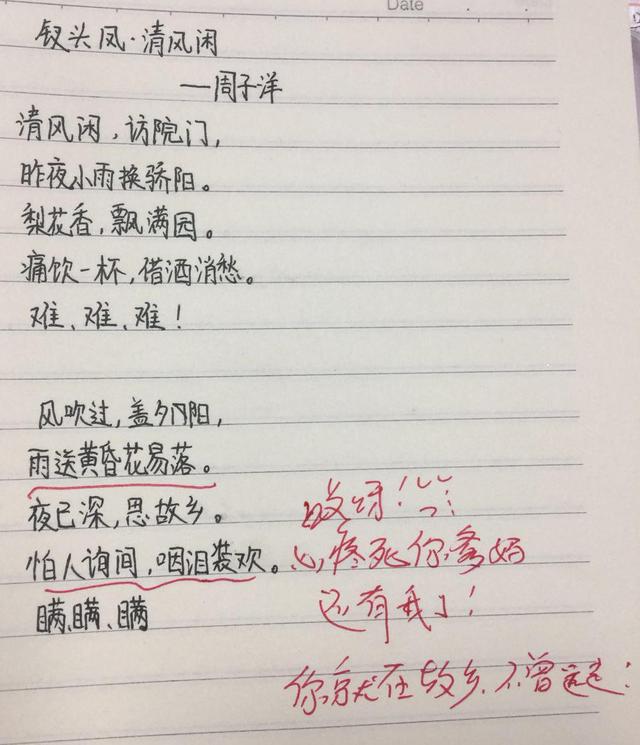 Date
钗头凤·清风闲
—周子洋
清风闲,访院门,
昨夜小雨换骄阳。
梨花香,飘满园。
痛饮一杯,借酒消愁。
难、难、难!
风吹过,盖夕阳,
雨送黄昏花易落。
夜已深,思故乡。
怕人询问,咽泪装欢。
瞒、瞒、瞒
哎呀!
心疼死你爹妈
还有我了!
你就在故乡、不曾